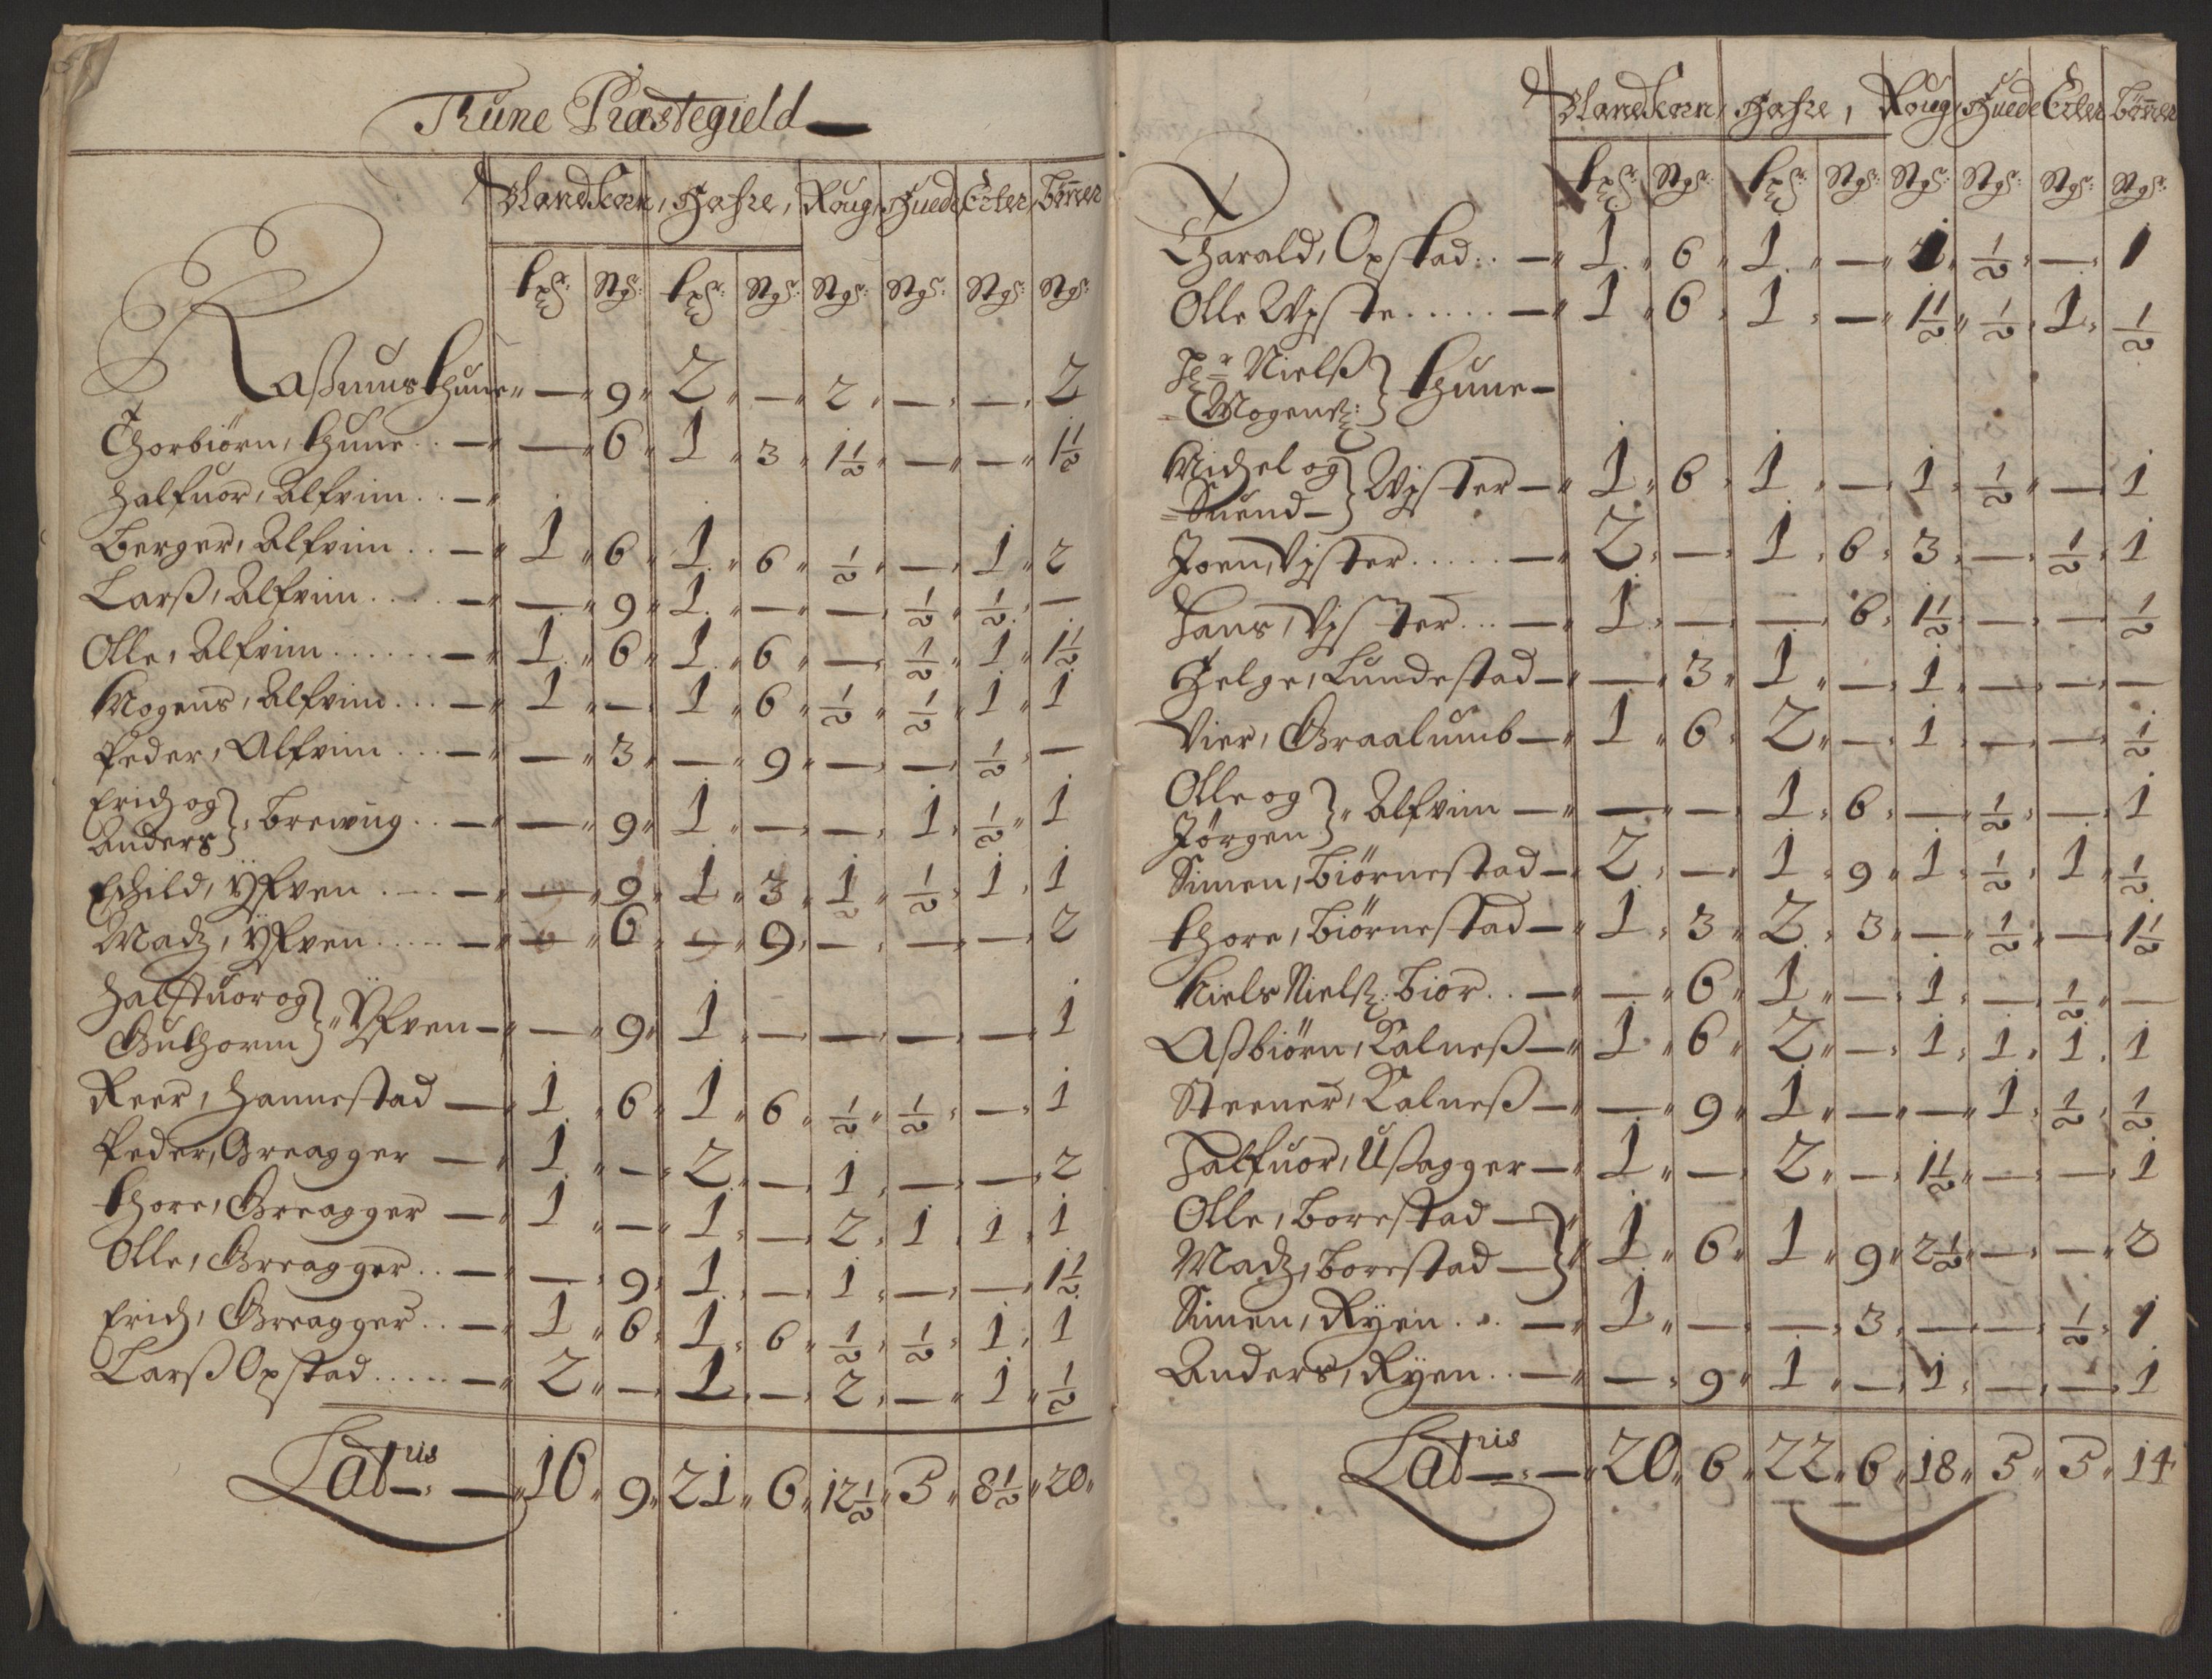 Thune Præstegield
Blandkorn, Hafre, Roug, Huede Erter, Bønner
tr: Stgr: tr: Stgr: Stgr: Stgr: Stgr: Stgr:
Rasmus thune — 9 2 — 2 — — 2
Thorbiørn, thune .. — — 6 1 3 1½ — — 1½
Halfuor, Alfvim .. —
Berger, Alfvim .. — 1 6 1 6 ½ — 1 2
Larß, Alfvim .... — — 9 1 — — ½ ½ —
Olle, Alfvim ...... — 1 6 1 6 — ½ 1 1½
Mogens, Alfvim ... — 1 — 1 6 ½ ½ 1 1
Peder, Alfvim ... — — 3 — 9 — — ½ —
Erich og
Anders } Brewiig .. — — 9 1 — — 1 ½ 1
Eschild, Ÿfven .... — — 9 1 3 1 ½ 1 1
Madz, Ÿfven ..... — — 6 — 9 — — — 2
Halftuor og
Guthorm } Ÿfven — — 9 1 — — — — 1
Reer, Hannestad — 1 6 1 6 ½ ½ — 1
Peder, Greagger — 1 — 2 — 1 — — 2
thore, Greagger — 1 — 1 — 2 1 1 1
Olle, Greagger .. — — 9 1 — 1 — — 1½
Erich, Greagger .. — 1 6 1 6 ½ ½ 1 1
Larß Opstad ..... — 2 — 1 — 2 — 1 ½
Lat:us — 16 9 21 6 12½ 5 8½ 20
Blandkorn, Hafre, Roug, Huede Erter Bønner
tr: Stgr: tr: Stgr: Stgr: Stgr: Stgr: Stgr:
Tharald, Opstad .. — 1 6 1 — 1 ½ — 1
Olle Vister ..... — 1 6 1 — 1½ ½ 1 ½
Hr Nielß
Mogens: } thune —
Michel og
Suend — } Vister — 1 6 1 — 1 ½ — 1
Joen, Vister ..... — 2 — 1 6 3 — ½ 1
Hans, Vister ... — 1 — — 6 1½ — — ½
Helge, Lundestad — — 3 1 — 1 — — —
Vier, Graalumb — 1 6 2 — 1 — — ½
Olle og
Jørgen } Alfvim — — — 1 6 — ½ — 1
Simen, Biørnestad — 2 — 1 9 1 ½ 1 ½
thore, Biørnestad — 1 3 2 3 — ½ — 1½
Niels Nielß: Biør .. — — 6 1 — 1 — ½ —
Aßbiørn, Kalneß — 1 6 2 — 1 1 1 1
Steener, Kalneß — — 9 1 — — 1 ½ ½
Halfuor, Ußagger — 1 — 2 — 1½ — — 1
Olle, Borestad —
Madz, Borestad — } 1 6 1 9 2½ — — 2
Simen, Ryen ... — 1 — — 3 — — ½ 1
Anders, Ryen .. — — 9 1 — 1 — — 1
Lat:us — 20 6 22 6 18 5 5 14